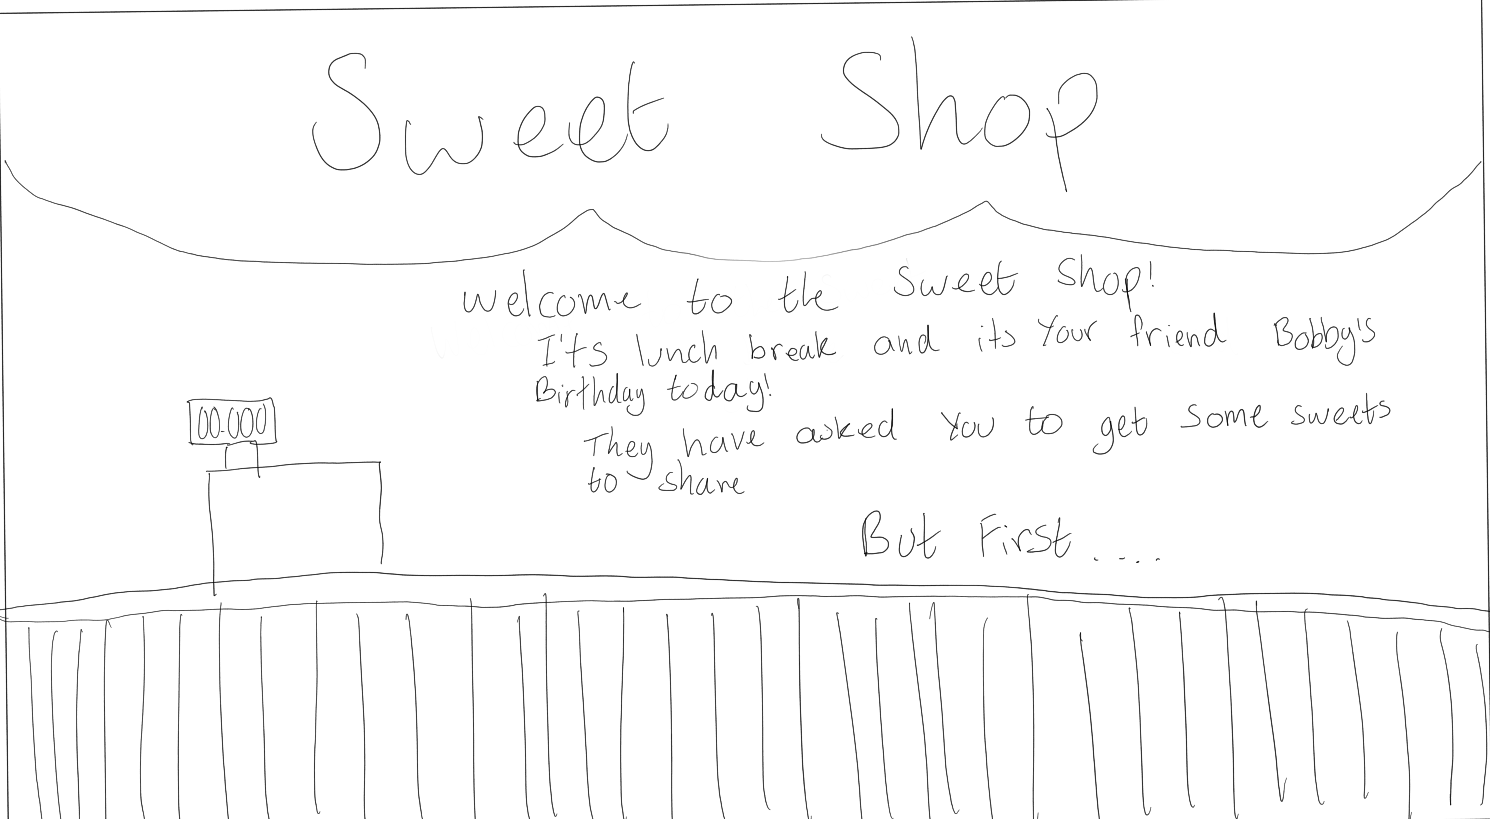 Sweet Shop
Welcome to the Sweet Shop!
I'ts lunch break and its Your friend Bobby's
Birthday today!
They have asked You to get some sweets
to share
But First ....
00.000